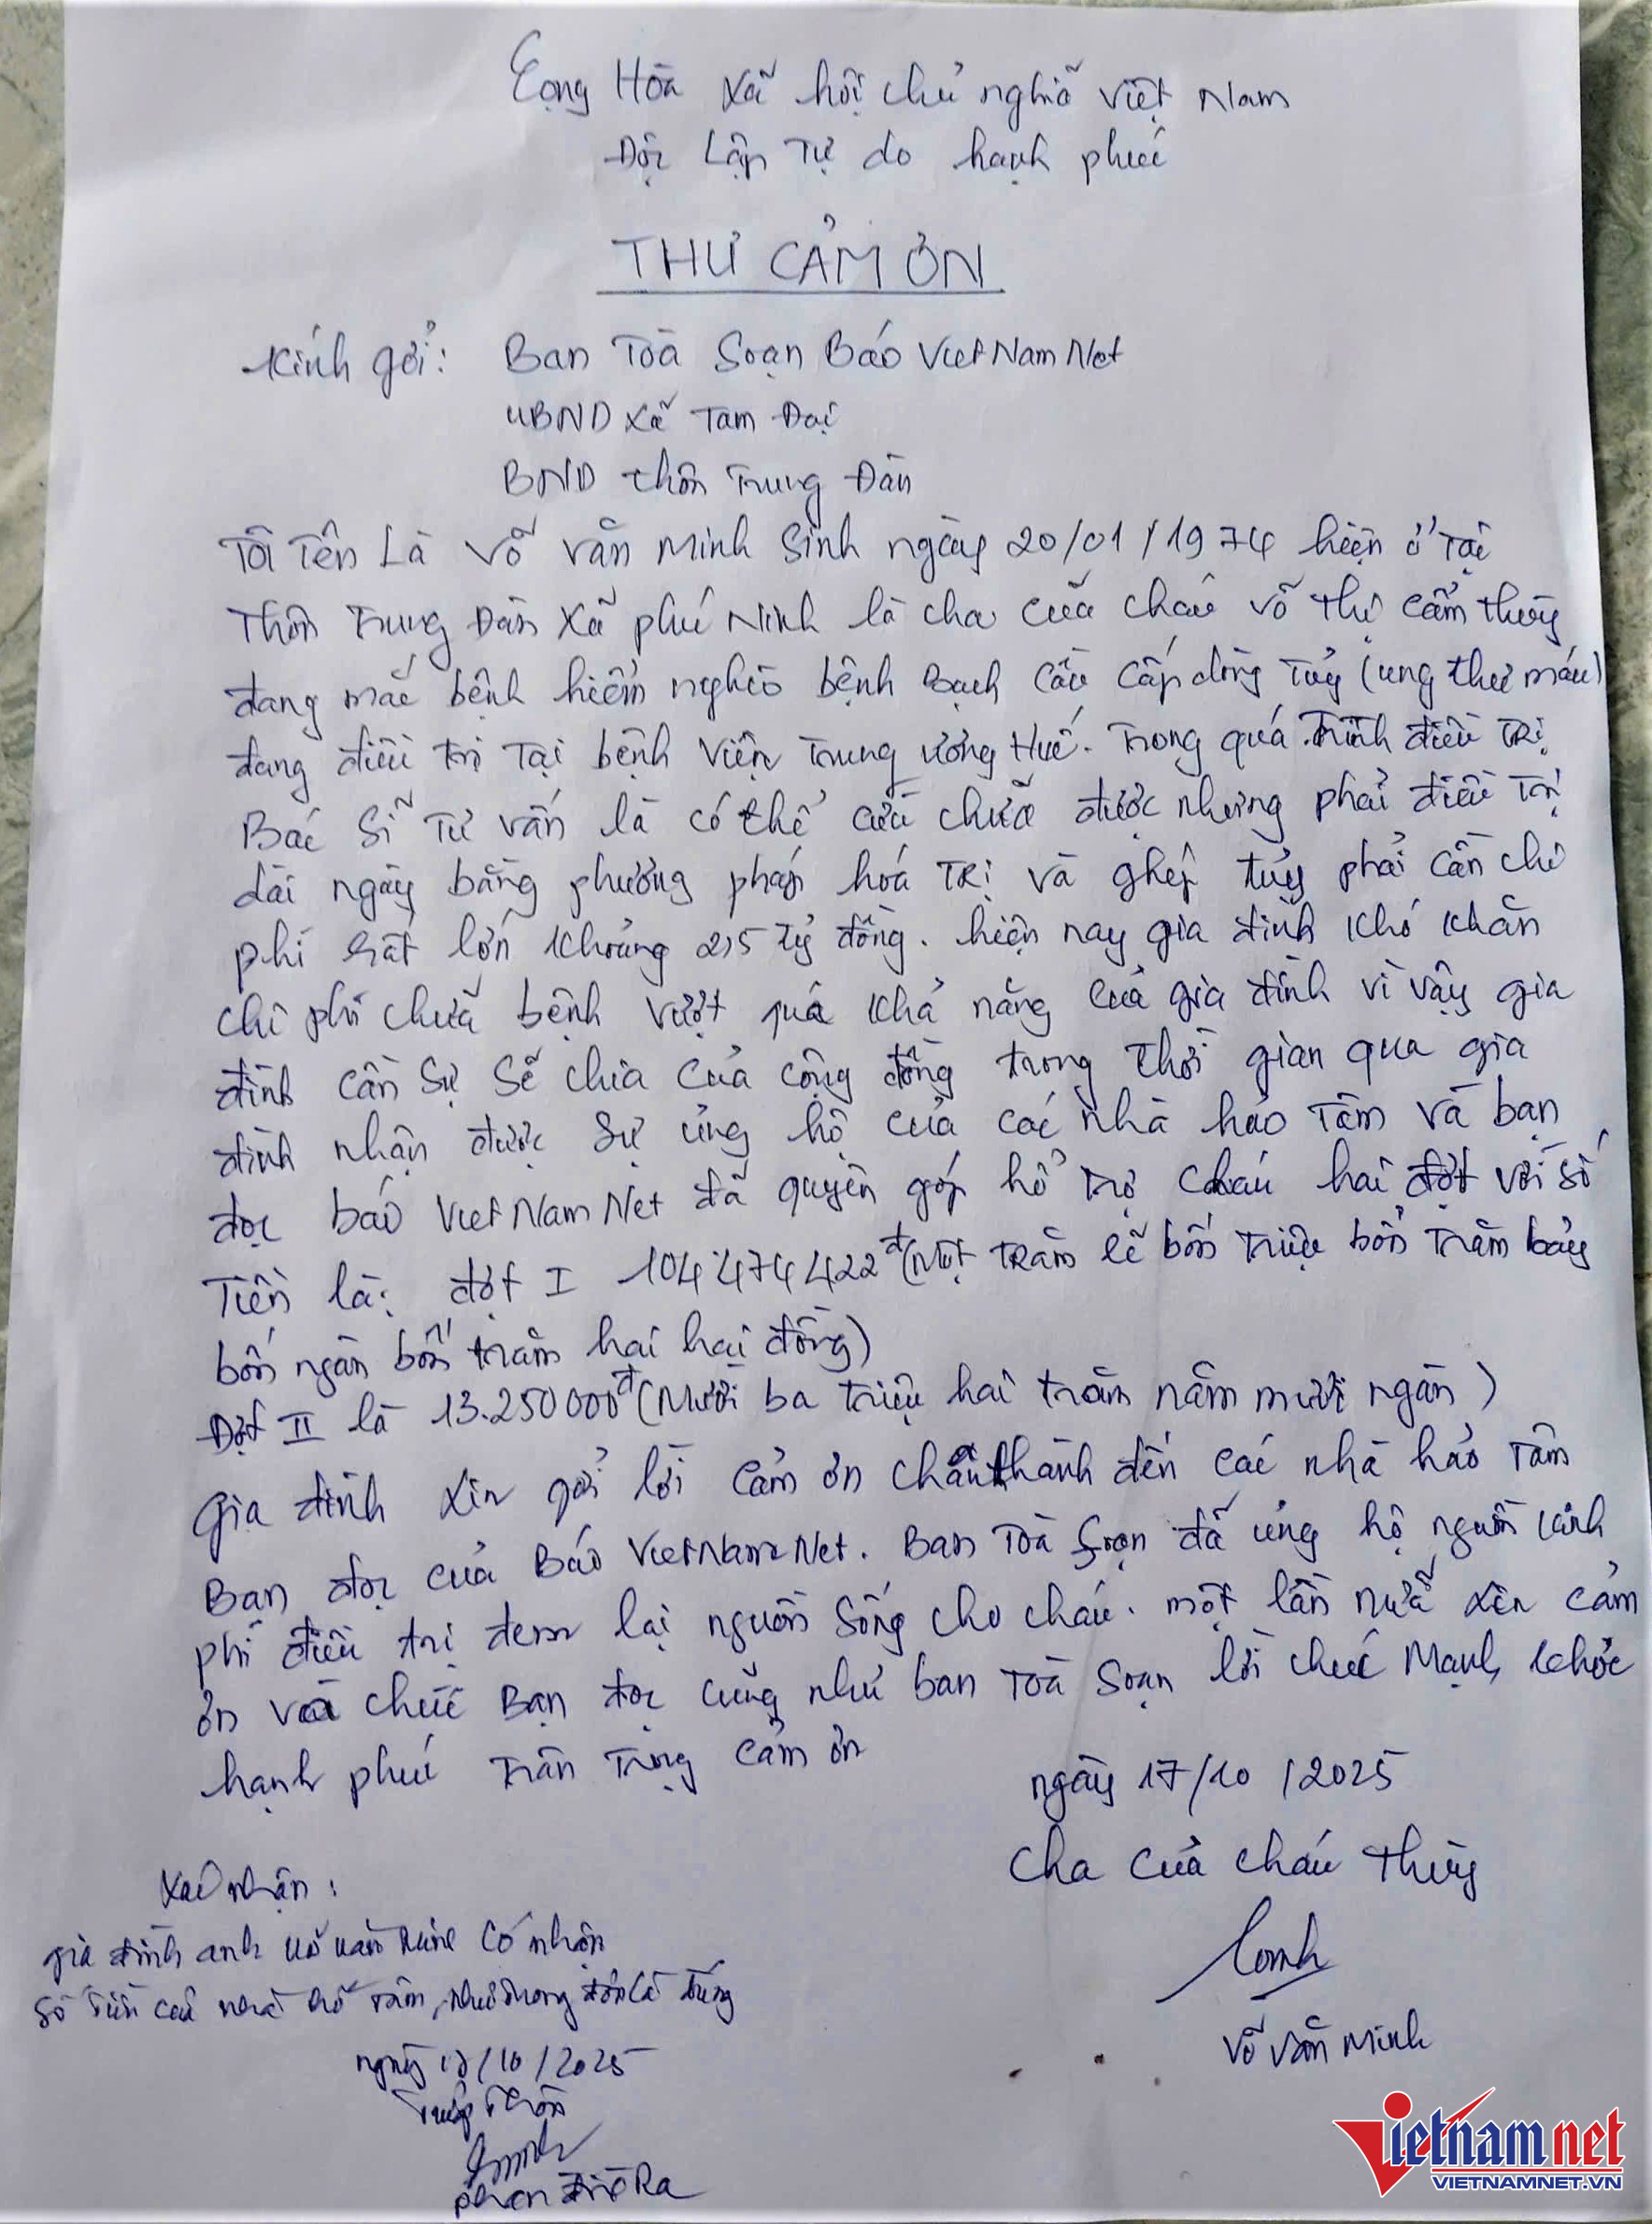 Cộng Hòa Xã hội chủ nghĩa Việt Nam
Độc Lập Tự do hạnh phúc
THƯ CẢM ƠN
Kính gởi: Ban Toà Soạn Báo VietNamNet
UBND Xã Tam Đại
BND thôn Trung Đàn
Tôi Tên Là Võ Văn Minh Sinh ngày 20/01/1974 hiện ở Tại
Thôn Trung Đàn Xã phú Ninh là cha của cháu Võ Thị Cẩm Thùy
đang mắc bệnh hiểm nghèo bệnh Bạch Cầu Cấp dòng Tủy (ung thư máu)
đang điều trị Tại bệnh viện Trung ương Huế. Trong quá trình điều TRị
Bác Sĩ Tư vấn là có thể cứu chữa được nhưng phải điều Trị
dài ngày bằng phương pháp hoá TRị và ghép tủy phải Cần chi
phí rất lớn Khoảng 2,5 Tỷ đồng. hiện nay gia đình Khó Khăn
chi phí chữa bệnh vượt quá Khả năng của gia đình vì vậy gia
đình cần Sự Sẽ chia của cộng đồng trong thời gian qua gia
đình nhận được Sự ủng hộ của các nhà hảo Tâm và bạn
đọc báo VietNamNet đã quyên góp hổ Trợ cháu hai đợt với Số
Tiền là: đợt I 104.474422đ (Một TRăm lẽ bốn Triệu bốn Trăm bảy
bốn ngàn bốn trăm hai hai đồng)
Đợt II là 13.250000đ (Mười ba triệu hai trăm năm mươi ngàn)
Gia đình xin gởi lời cảm ơn chân thành đến các nhà hảo Tâm
Bạn đọc của Báo VietNamNet. Ban Toà Soạn đã ủng hộ nguồn kinh
phí điều trị đem lại nguồn Sống cho cháu. một lần nữa xin cảm
ơn và chúc Bạn đọc cũng như ban Toà Soạn lời chúc Mạnh khỏe
hạnh phúc Trân Trọng cảm ơn
ngày 17/10/2025
Cha của cháu Thùy
Võ Văn Minh
Xác nhận:
gia đình anh Võ Văn Minh Có nhận
Số tiền của nhà hảo tâm, như trong đơn là đúng
ngày /10/2025
Trưởng Thôn
Phan Đình Ra
Vietnamnet
VIETNAMNET.VN